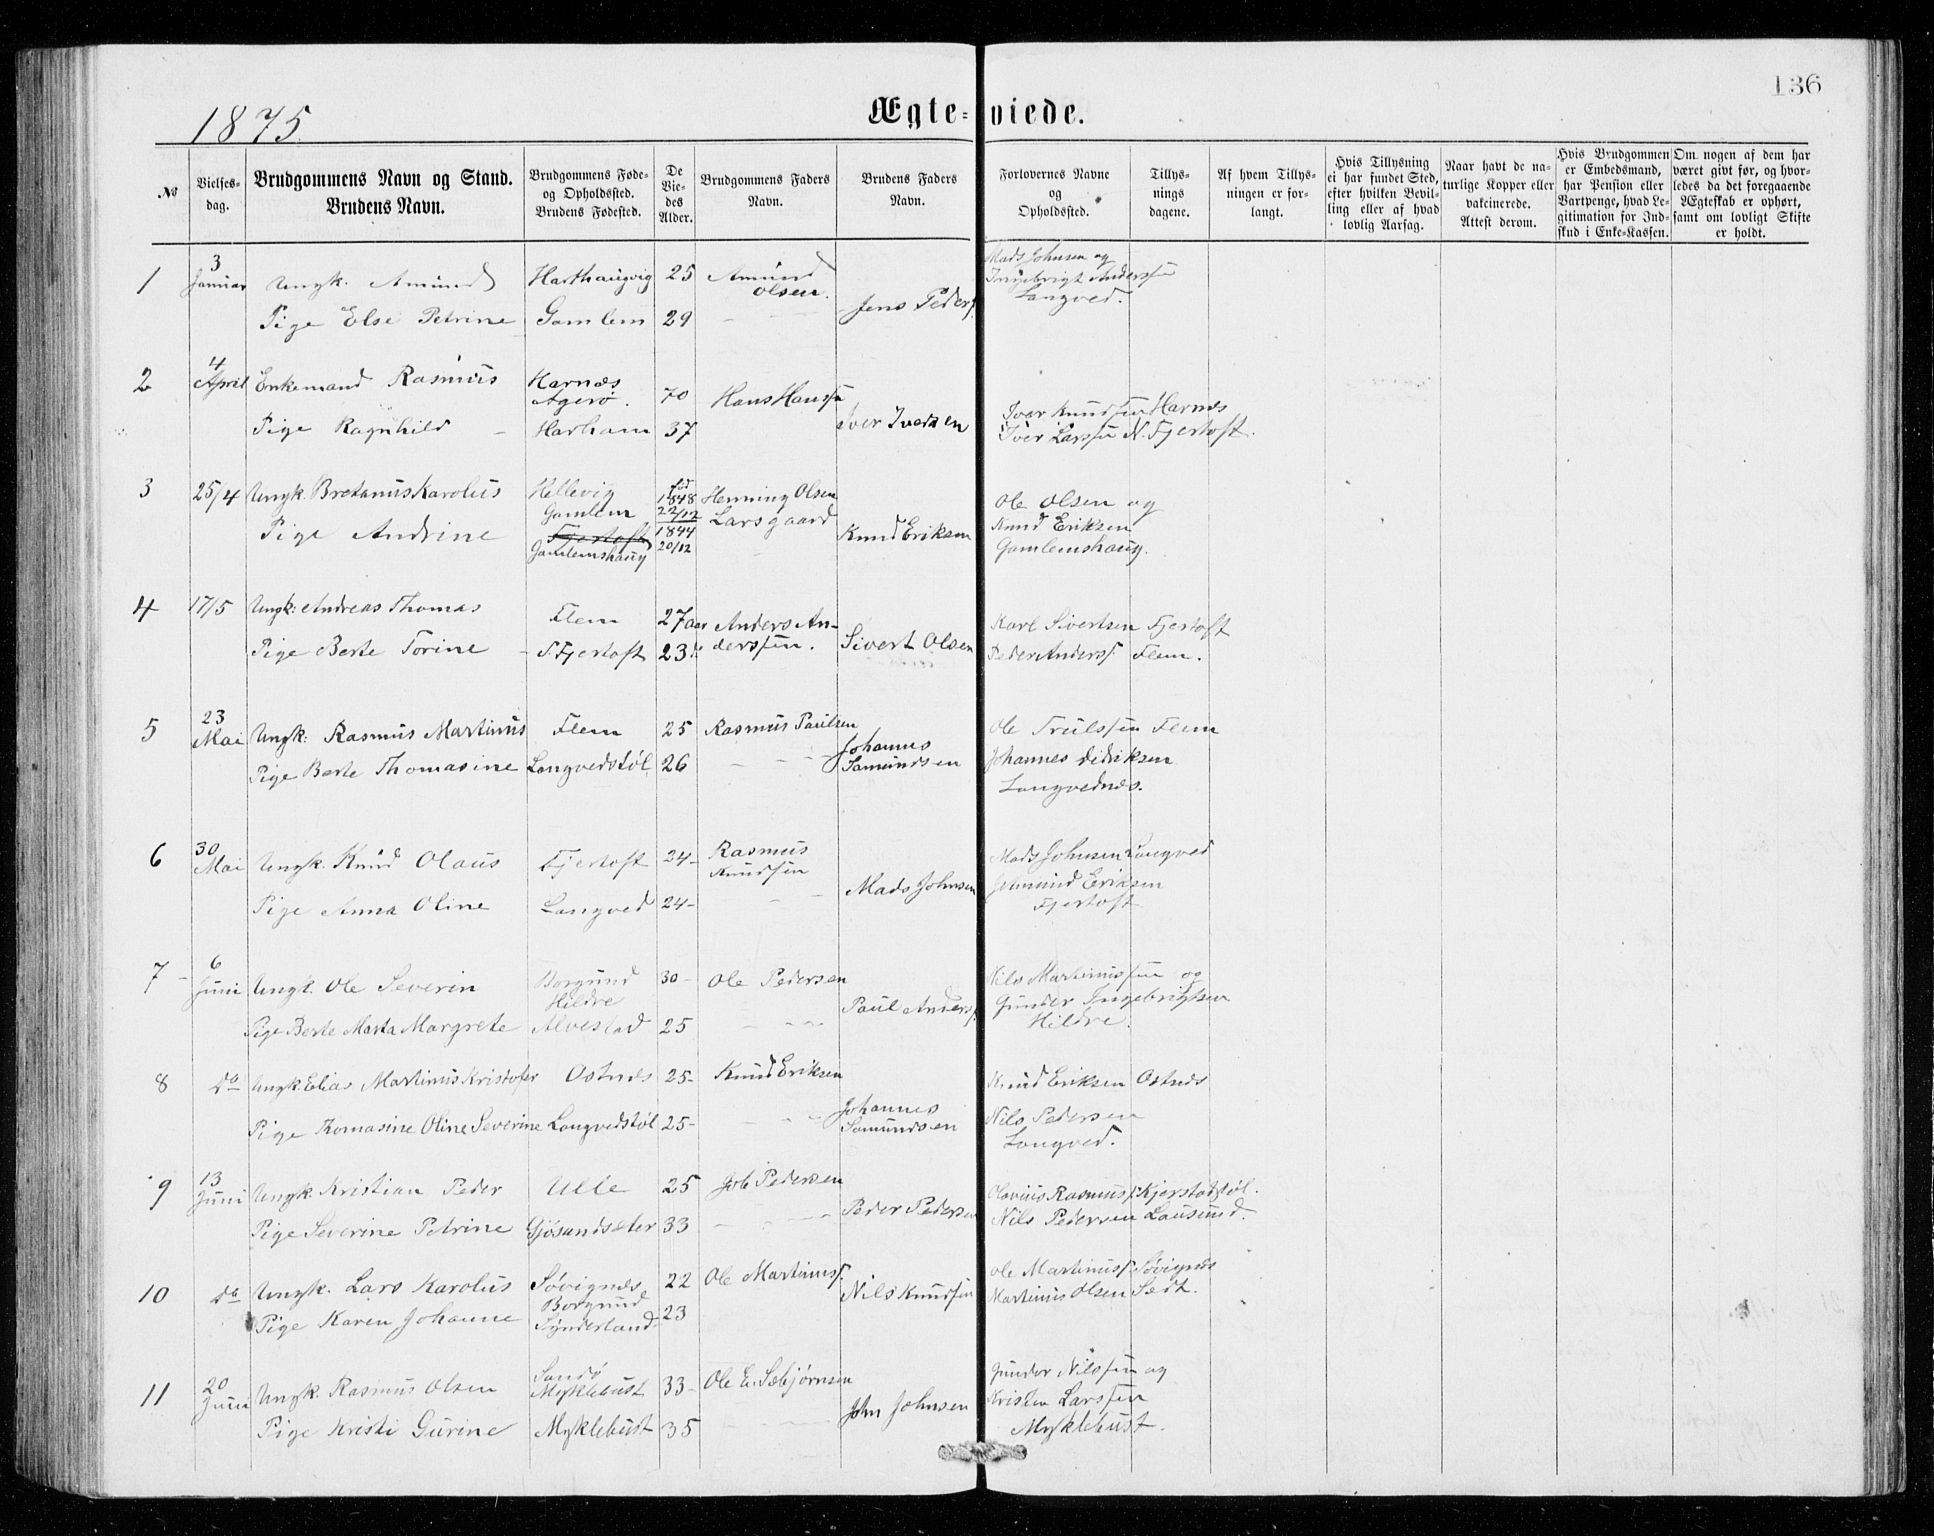 136
1875
Ægte-viede.
№
Vielses-dag.
Brudgommens Navn og Stand.
Brudens Navn.
Brudgommens Føde-
og Opholdssted.
Brudens Fødested.
De
Vie-
des
Alder.
Brudgommens Faders
Navn.
Brudens Faders
Navn.
Forlovernes Navne
og
Opholdssted.
Tillys-
nings
dagene.
Af hvem Tillys-
ningen er for-
langt.
Hvis Tillysning
ei har fundet Sted,
efter hvilken Bevil-
ling eller af hvad
lovlig Aarsag.
Naar havt de na-
turlige Kopper eller
vakcinerede.
Attest derom.
Hvis Brudgommen
er Embedsmand,
har Pension eller
Vartpenge, hvad Le-
gitimation for Ind-
skud i Enke-Kassen.
Om nogen af dem har
været givt før, og hvor-
ledes da det foregaaende
Ægteskab er ophørt,
samt om lovligt Skifte
er holdt.
1 3 Januar Ungk. Amund Harthaugvig 25 Amund Olsen. Mads Johnsen og
Ingebrigt Anderssen
Langved.
Pige Else Petrine Gamlem 29 Jens Peders.
2 4 April Enkemand Rasmus Harnæs Agerø. 70 Hans Hanssen
Pige Ragnhild Harham 37 Iver Iversen Iver Knudssen Harnes
Iver Larssen N. Fjertoft.
3 25/4 Ungk. Bretanus Karolus Hellevig Gamlem fød 1848 22/12 Henning Olsen Larsgaard
Pige Andrine Fjertoft Gamlemshaug 1844 20/12 Knud Eriksen Ole Olsen og
Knud Eriksen
Gamlemshaug.
4 17/5 Ungk: Andreas Thomas Flem 27 aar Anders An-
derssen.
Pige Berte Torine S. Fjertoft 23 Sivert Olsen Karl Sivertsen Fjertoft
Peder Anders. Flem.
5 23 Mai Ungk: Rasmus Martinus Flem 25 Rasmus Paulsen Ole Trulssen Flem
Pige Berte Thomasine Langvedstøl 26 Johannes Samundsen Johannes Didriksen
Langvednes.
6 30 Mai Ungk. Knud Olaus Fjertoft 24- Rasmus Knudssen Mads Johnsen Langved
Pige Anna Oline Langved 24- Mads Johnsen Johmund Eriksen
Fjertoft
7 6 Juni Ungk. Ole Severin Borgund Hildre 30- Ole Pedersen Nils Martinussen og
Pige Berte Marta Margrete Alvestad 25 Paul Anders. Gunder Ingebrigtsen
Hildre.
8 do Ungk. Elias Martinus Kristofer Ostnes 25- Knud Eriksen Knud Eriksen Ostnes
Pige Thomasine Oline Severine Langvedstøl 25- Johannes Samundsen Nils Pedersen
Langved.
9 13 Juni Ungk. Kristian Peder Ulle 25 Job Pedersen Olavius Rasmus. Kjerstadstøl.
Pige Severine Petrine Gjøsundsæter 33 Peder Pedersen Nils Pedersen Lausund.
10 do Ungk. Lars Karolus Søvignes 22 Ole Martinuss. Ole Martinus. Søvignes
Pige Karen Johanne Borgund Synderland 23 Nils Knudsen Martinus Olsen Sædt.
11 20 Juni Ungk. Rasmus Olsen Sandø Myklebust 33- Ole E. Sæbjørnsen Gunder Nilssen og
Pige Kristi Gurine Myklebust 35 John Johnsen Kristen Larssen
Myklebust.